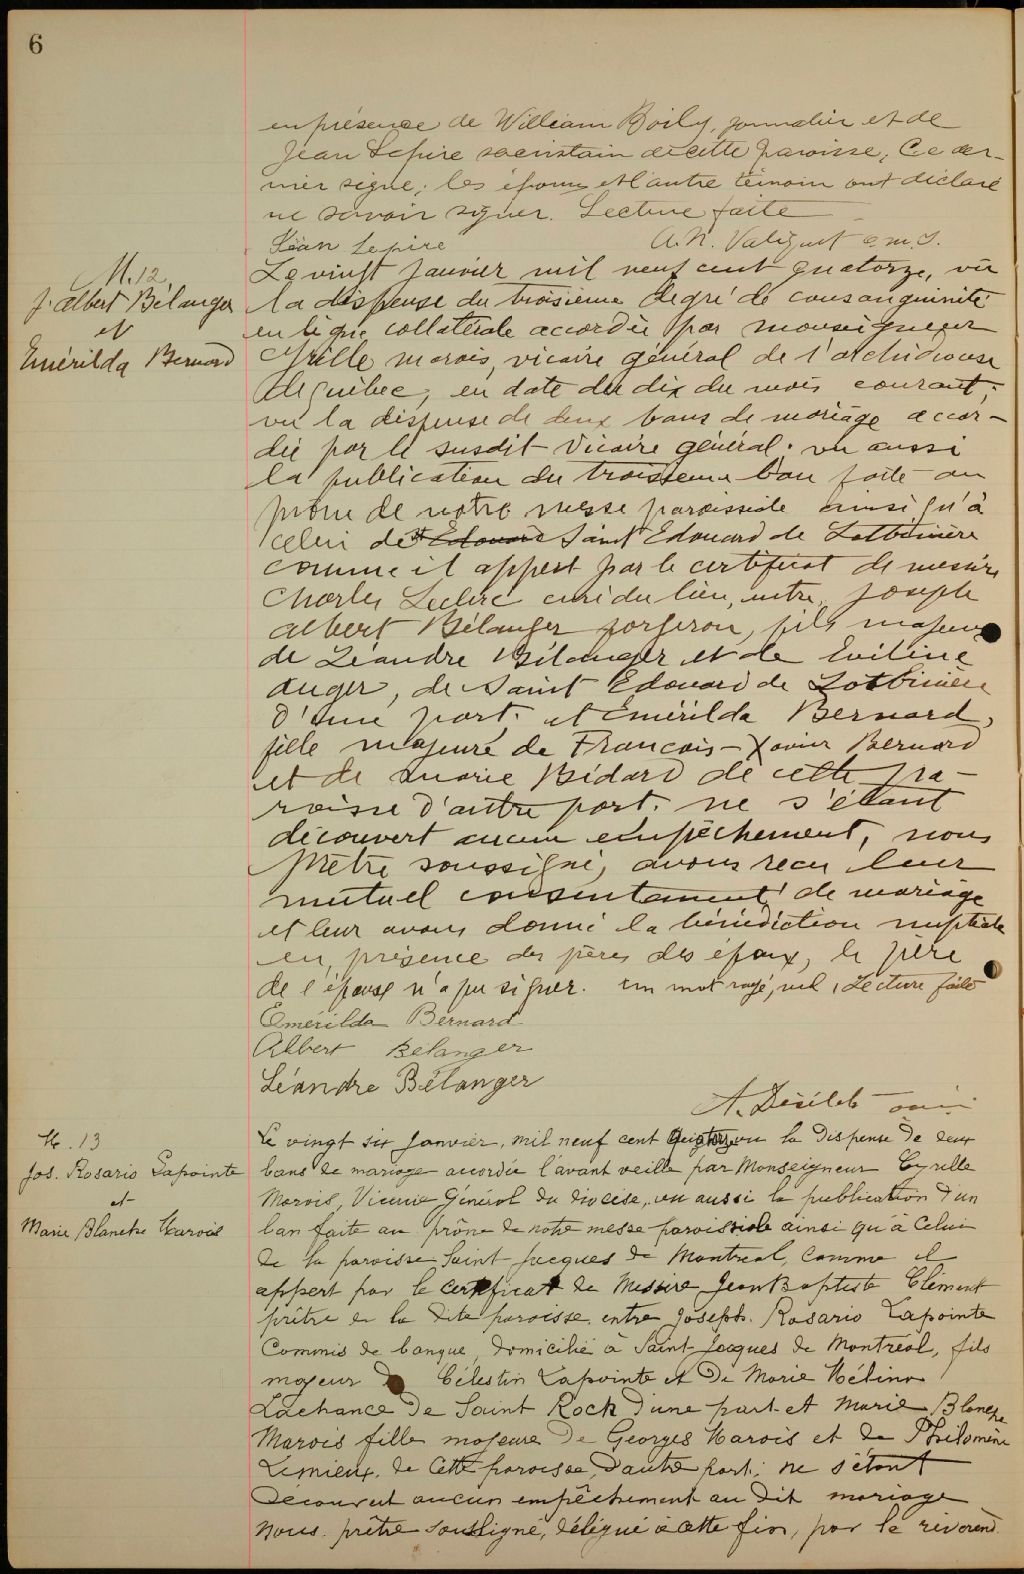 6
en présence de William Boily, journalier et de
Jean Lepire sacristain de cette paroisse; Ce der-
nier signe; les époux et l'autre témoin ont déclaré
ne savoir signer. Lecture faite
Jean Lepire
A.N. Valiquet o.m.I.
M. 12
J. Albert Bélanger
et
Emérilda Bernard
Le vingt janvier mil neuf cent quatorze, vu
la dispense du troisième degré de consanguinité
en ligne collatérale accordée par monseigneur
Cyrille marois, vicaire général de l'archidiocèse
de québec, en date du dix du mois courant;
vu la dispense de deux bans de mariage accor-
dée par le susdit Vicaire général; vu aussi
la publication du troisième ban faite au
prône de notre messe paroissiale ainsi qu'à
celui de St Edouard Saint Edouard de Lotbinière
comme il appert par le certificat de messire
Charles Leclerc curé du lieu, entre, Joseph
Albert Bélanger forgeron, fils majeur
de Léandre Bélanger et de Eveline
Auger, de Saint Edouard de Lotbinière
d'une part; et Emérilda Bernard,
fille majeure de François-Xavier Bernard
et de Marie Bédard de cette pa-
roisse d'autre part; ne s'étant
découvert aucun empêchement, nous
prêtre soussigné, avons recu leur
mutuel consentement de mariage
et leur avons donné la bénédiction nuptiale
en présence des pères des époux, le père
de l'épouse n'a pu signer. un mot rayé, nul, Lecture faite
Emérilda Bernard
Albert Bélanger
Léandre Bélanger
A. Désilets o.m.i.
M. 13
Jos. Rosario Lapointe
et
Marie Blanche Marois
Le vingt six Janvier, mil neuf cent quatorze vu la dispense de deux
bans de mariage accordée l'avant veille par Monseigneur Cyrille
Marois, Vicaire Général du diocèse, vu aussi la publication d'un
ban faite au prône de notre messe paroissiale ainsi qu'à celui
de la paroisse Saint-Jacques de Montreal, comme il
appert par le certificat de Messire Jean Baptiste Clément
prêtre de la dite paroisse, entre Joseph Rosario Lapointe
Commis de banque, domicilié à Saint-Jacques de Montréal, fils
majeur de Célestin Lapointe et de Marie Mélina
Lachance de Saint Roch d'une part et Marie Blanche
Marois fille majeure de Georges Marois et de Philomène
Lemieux de cette paroisse, d'autre part; ne s'étant
découvert aucun empêchement au dit mariage
nous prêtre soussigné, délégué à cette fin, par le révérend